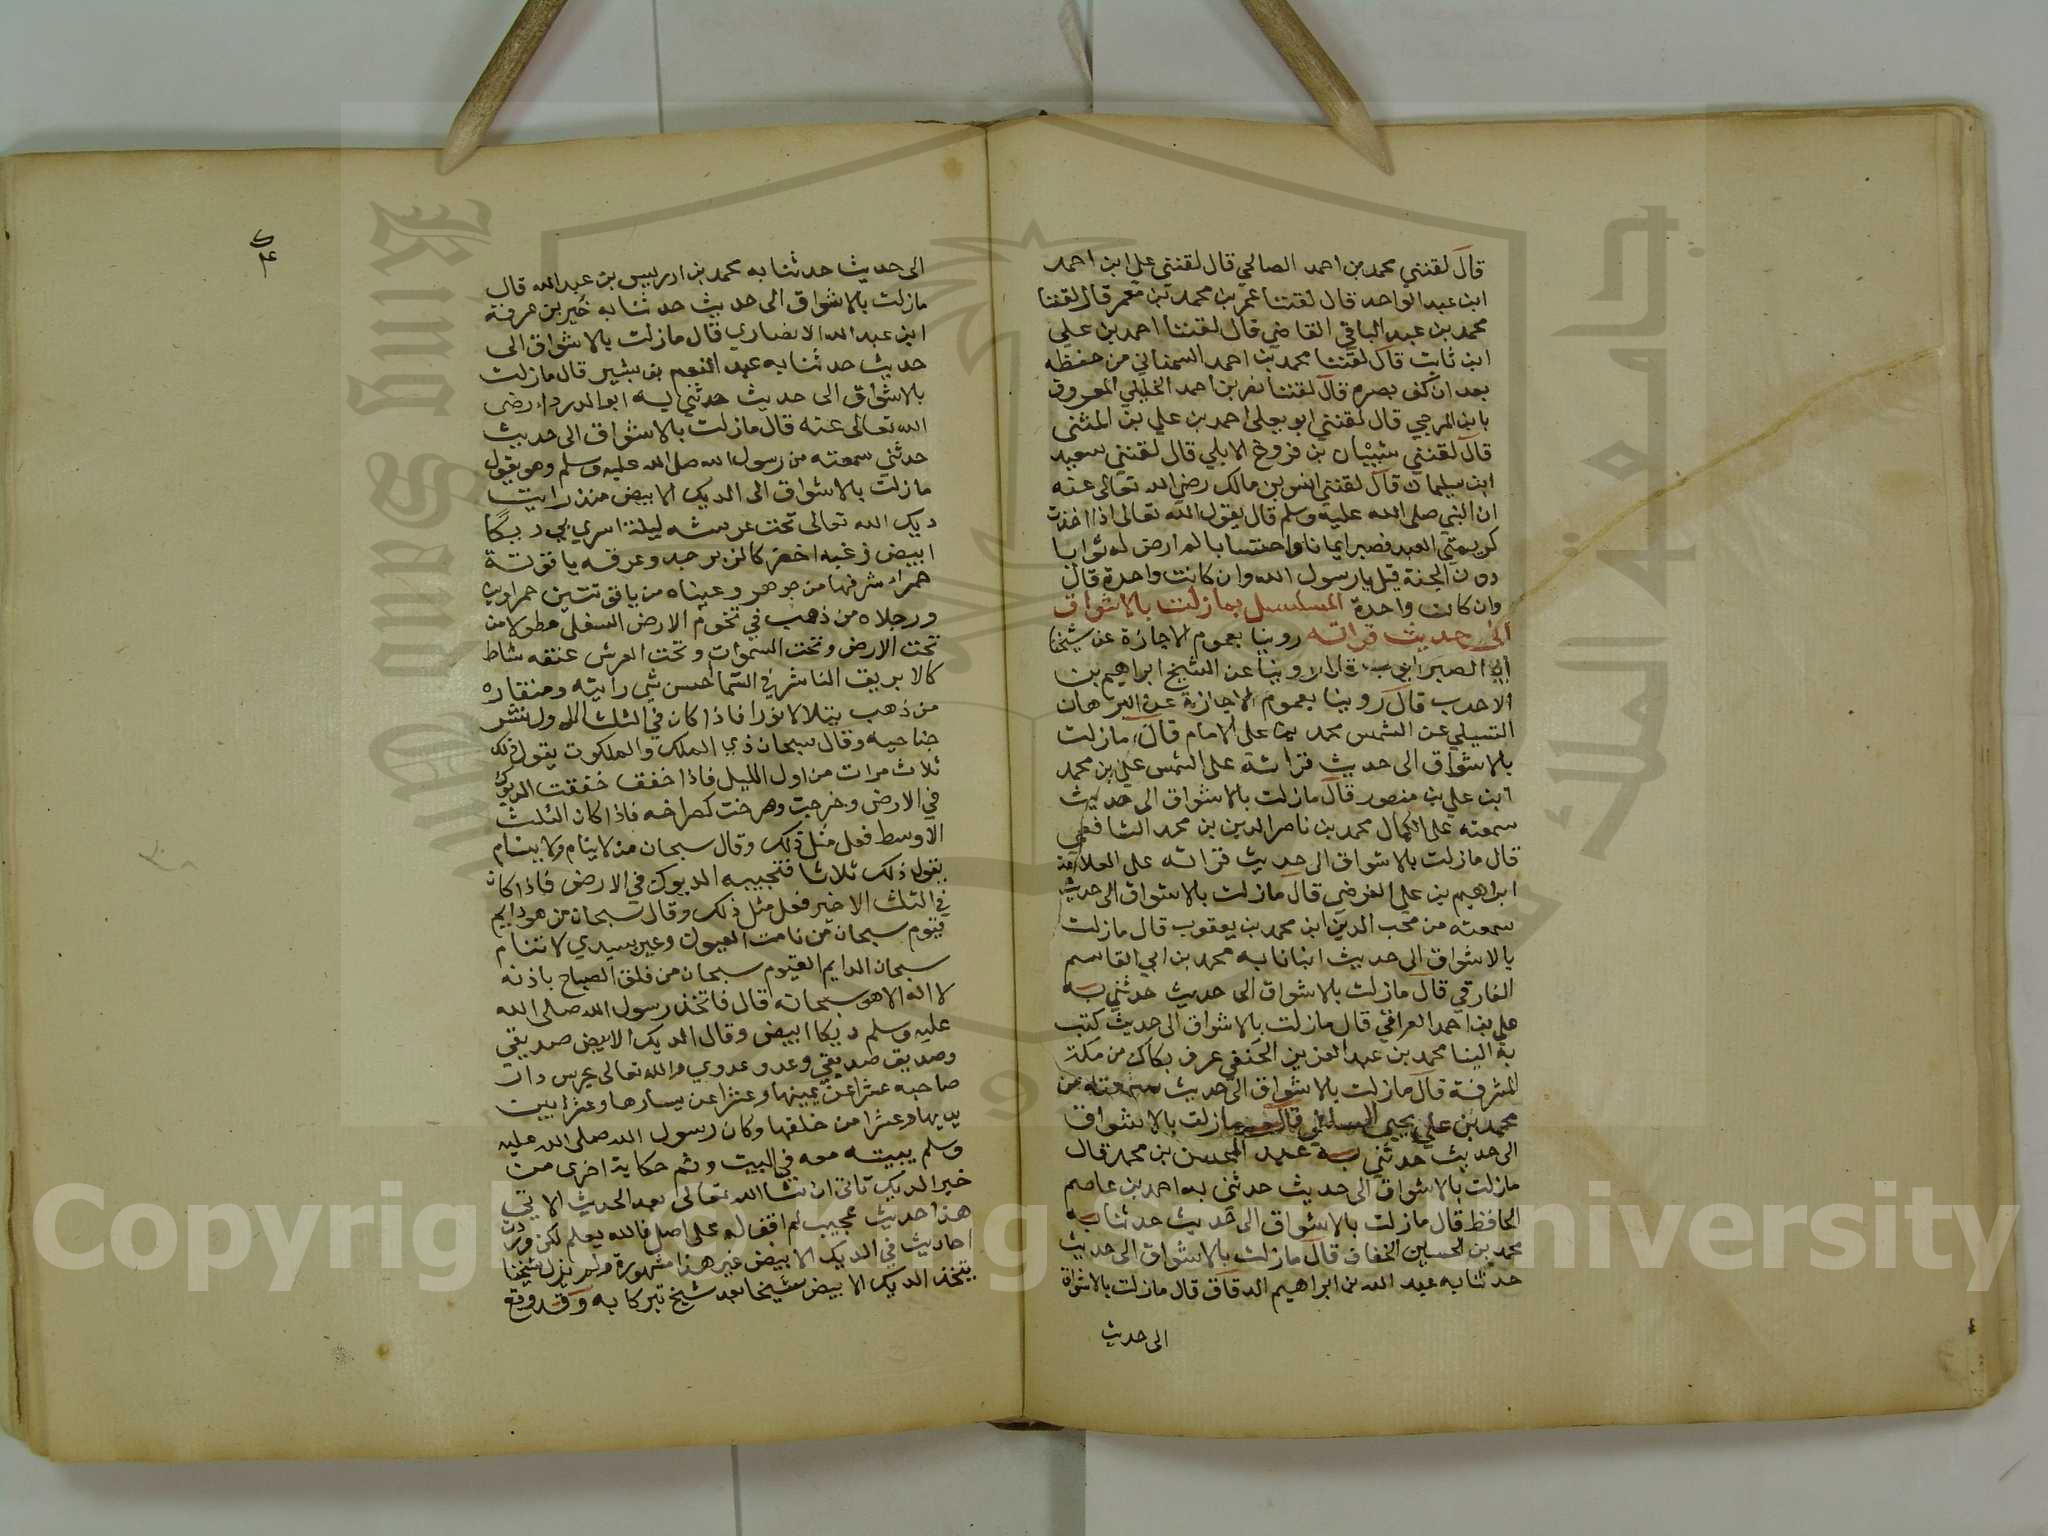 قال لقنني محمد بن احمد الصالحي قال لقنني علي ابن احمد
ابن عبد الواحد قال لقننا عمر بن محمد بن معمر قال لقننا
محمد بن عبد الباقي القاضي قال لقننا احمد بن علي
ابن ثابت قال لقننا محمد بن احمد السمناني من حفظه
بعد ان كف بصره قال لقننا نصر بن احمد الخليلي المعروف
بابن المرجي قال لقنني ابو يعلى احمد بن علي بن المثنى
قال لقنني شيبان بن فروخ الابلي قال لقنني سعيد
ابن سليمان قال لقنني انس بن مالك رضي الله تعالى عنه
ان النبي صلى الله عليه وسلم قال يقول الله تعالى اذا اخذت
كريمتي العبد فصبر ايمانا واحتسابا لم ارض له ثوابا
دون الجنة قيل يا رسول الله وان كانت واحدة قال
وان كانت واحدة المسلسل بمازلت بالاشواق
الى حديث قراته روينا بعموم الاجازة عن شيخنا
ابي الصبر ايوب قال روينا عن الشيخ ابراهيم بن
الاحدب قال روينا بعموم الاجازة عن البرهان
عن الشمس محمد بن علي الامام قال مازلت
بالاشواق الى حديث قراته على الشمس علي بن محمد
ابن علي بن منصور قال مازلت بالاشواق الى حديث
سمعته على الكمال محمد بن ناصر الدين بن محمد الشافعي
قال مازلت بالاشواق الى حديث قراته على العلامة
ابراهيم بن علي الفرضي قال مازلت بالاشواق الى حديث
سمعته من محب الدين ابن محمد بن يعقوب قال مازلت
بالاشواق الى حديث انبانا به محمد بن ابي القاسم
الفارقي قال مازلت بالاشواق الى حديث حدثني به
علي بن احمد العراقي قال مازلت بالاشواق الى حديث كتب
به الينا محمد بن عبد العزيز الحنفي عرف بكاك من مكة
المشرفة قال مازلت بالاشواق الى حديث سمعته من
محمد بن علي يحيى قال مازلت بالاشواق
الى حديث حدثني به عبد المحسن بن محمد قال
مازلت بالاشواق الى حديث حدثني به احمد بن عاصم
الحافظ قال مازلت بالاشواق الى حديث حدثنا به
محمد بن الحسين الخفاف قال مازلت بالاشواق الى حديث
حدثنا به عبد الله بن ابراهيم الدقاق قال مازلت بالاشواق
الى حديث
الى حديث حدثنا به محمد بن ادريس بن عبد الله قال
مازلت بالاشواق الى حديث حدثنا به خير بن عرفة
ابن عبد الله الانصاري قال مازلت بالاشواق الى
حديث حدثنا به عبد المنعم بن بشير قال مازلت
بالاشواق الى حديث حدثني به ابو الدرداء رضي
الله تعالى عنه قال مازلت بالاشواق الى حديث
حدثني سمعته من رسول الله صلى الله عليه وسلم وهو يقول
مازلت بالاشواق الى الديك الابيض منذ رايت
ديك الله تعالى تحت عرشه ليلة اسري بي ديكا
ابيض زغبه اخضر كالزبرجد وعرفه ياقوتة
حمراء شرفها من جوهر وعيناه من ياقوتتين حمراوين
ورجلاه من ذهب في تخوم الارض السفلى مطولا من
تحت الارض وتحت السموات وتحت العرش عنقه شاط
كالابريق الناشر في السما احسن شي رايته ومنقاره
من ذهب يتلالا نورا فاذا كان في الثلث الاول نشر
جناحيه وقال سبحان ذي الملك والملكوت يقول ذلك
ثلاث مرات من اول الليل فاذا خفق خفقت الديوك
في الارض وخرجت وصرخت كصراخه فاذا كان الثلث
الاوسط فعل مثل ذلك وقال سبحان من لا ينام ولا ينام
يقول ذلك ثلاثا فتجيبه الديوك في الارض فاذا كان
في الثلث الاخير فعل مثل ذلك وقال سبحان من هو دايم
قيوم سبحان من نامت العيون وعين سيدي لا تنام
سبحان الدايم القيوم سبحان من فلق الصباح باذنه
لا اله الا هو سبحانه قال فاتخذ رسول الله صلى الله
عليه وسلم ديكا ابيض وقال الديك الابيض صديقي
وصديق صديقي وعدو عدوي والله تعالى يحرس دار
صاحبه عشرا عن يمينها وعشرا عن يسارها وعشرا بين
يديها وعشرا من خلفها وكان رسول الله صلى الله عليه
وسلم يبيته معه في البيت وثم حكاية اخرى من
خبر الديك تاتي ان شا الله تعالى بعد الحديث الاتي
هذا حديث عجيب لم اقف له على اصل فالله يعلم لكن وردت
احاديث في الديك الابيض غير هذا مشهورة ولم يزل شيخنا
يتخذ الديك الابيض شيخا بعد شيخ تبركا به وقد وقع
Copyright © King Saud University
جامعة الملك سعود
King Saud University